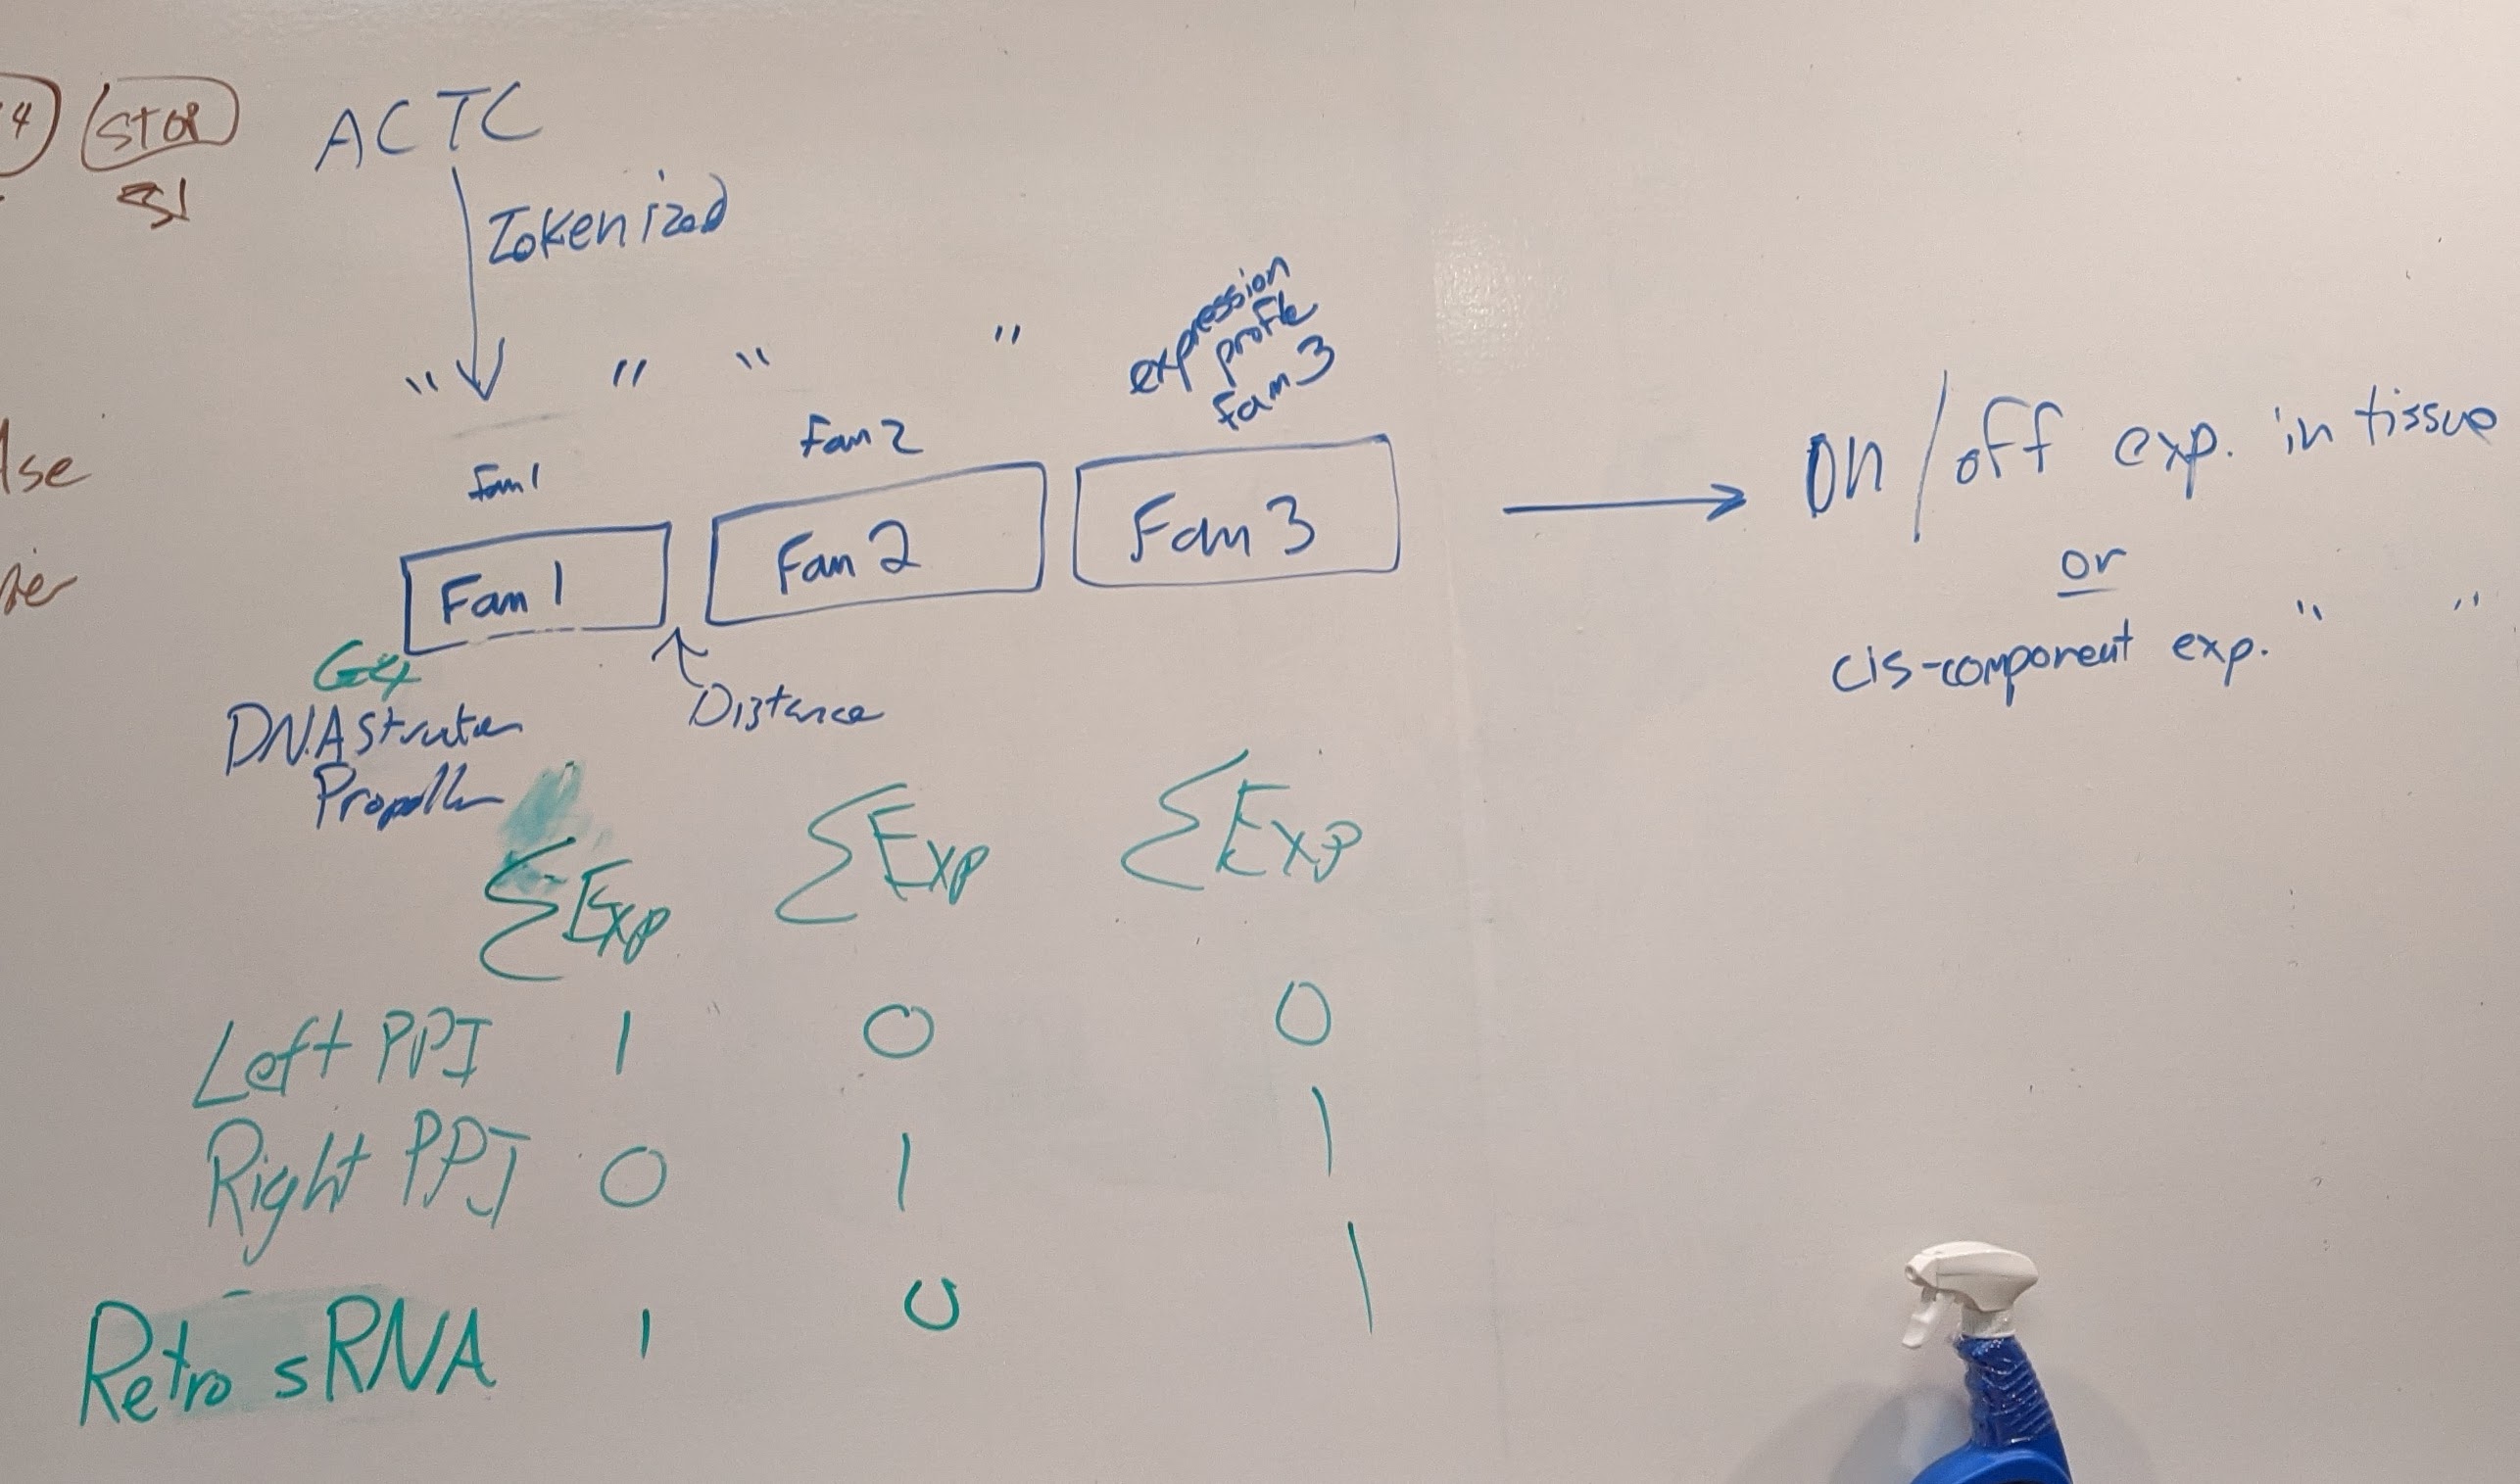 4 STOP
31
ACTC
Tokenized
" " " " expression
profile
Fam 3
Fam 2
Fam 1
Fam 1 Fam 2 Fam 3
on/off exp. in tissue
or
cis-component exp. " "
lse
G4
DNA Structure
Distance
ΣExp ΣExp ΣExp
Left PPI 1 0 0
Right PPI 0 1 1
Retro sRNA 1 0 1